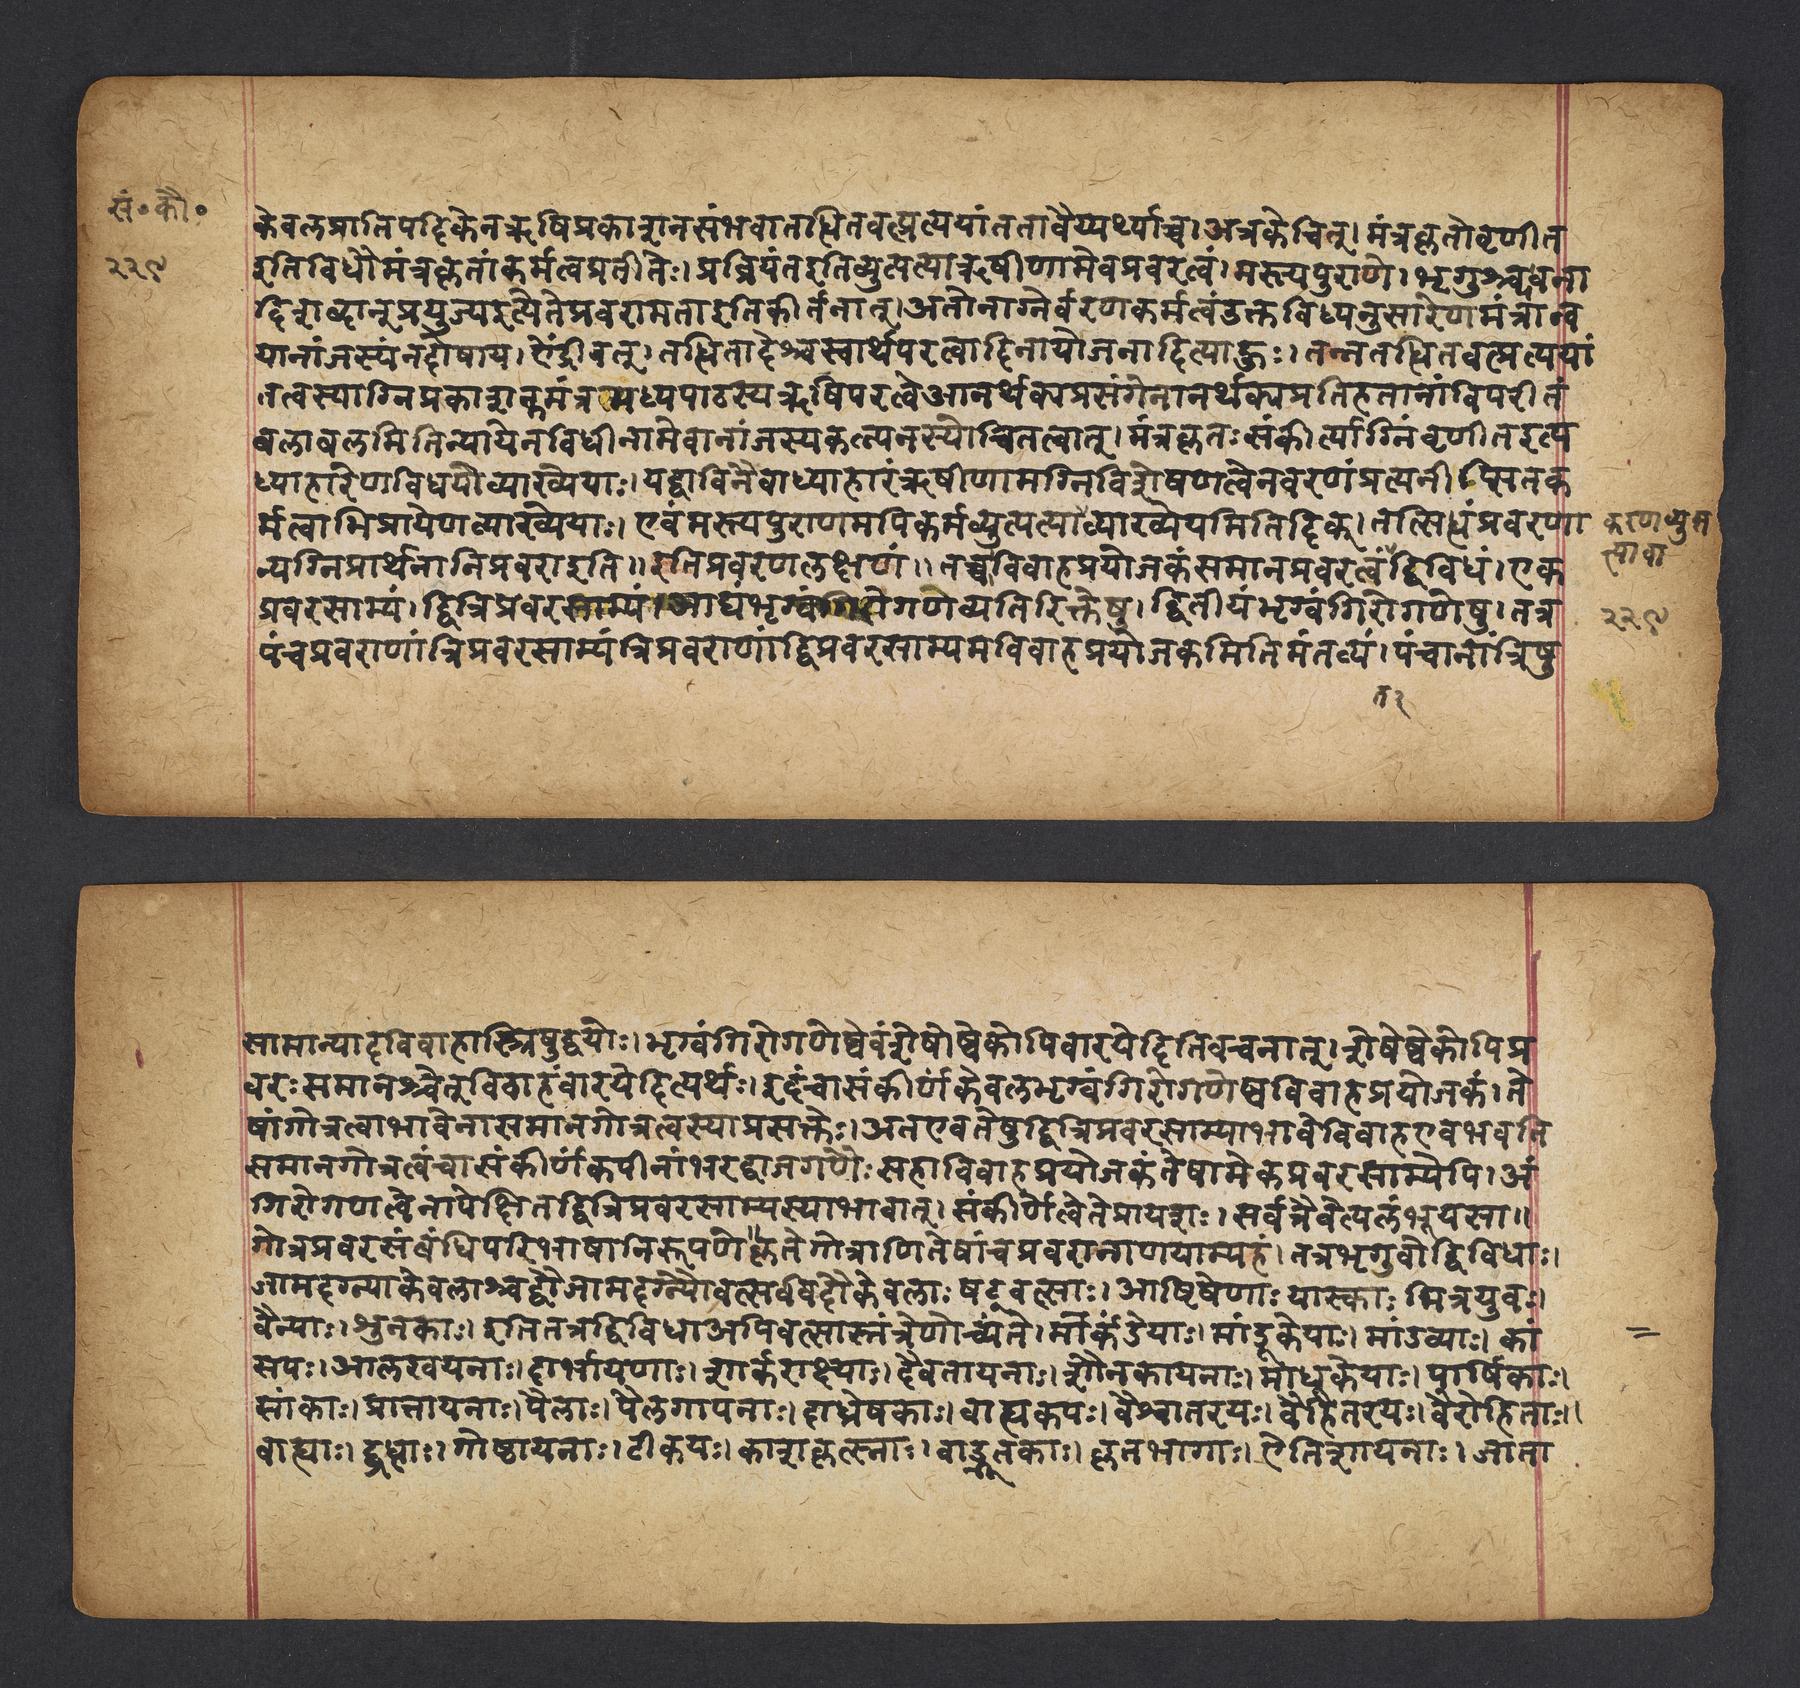 सं॰कौ॰
२२९
केवलप्रातिपदिकेनऋषिप्रकाशनसंभवात्तद्धितवत्प्रत्ययांततावैय्यर्थ्याच्च।अत्रकेचित्।मंत्रकृतोवृणीत
इतिविधौमंत्रकृतांकर्मत्वप्रतीतेः।प्रव्रियंतइतिव्युत्पत्याऋषीणामेवप्रवरत्वं।मत्स्यपुराणे।भृगुश्च्यवना
दिशब्दान्प्रयुज्यइत्येतेप्रवरामताइतिकीर्तनात्।अतोनाग्नेर्वरणकर्मत्वंउक्तविध्यनुसारेणमंत्रान्व
यानांजस्यंनदोषाय।ऐंद्रीवत्।तद्धितादेश्चस्वार्थपरत्वादिनायोजनादित्याहुः।तन्नतद्धितवत्प्रत्ययां
तत्वस्याग्निप्रकाशकमंत्रमध्यपाठस्यऋषिपरत्वेआनर्थक्यप्रसंगेनानर्थक्यप्रतिहतानांविपरीतं
बलाबलमितिन्यायेनविधीनामेवानांजस्यकल्पनस्यौचितत्वात्।मंत्रकृतःसंकीर्त्याग्निंवृणीतइत्य
ध्याहारेणविधयोव्याख्येयाः।यद्वाविनैवाध्याहारंऋषीणामग्निविशेषणत्वेनवरणंप्रत्यनीप्सितक
र्मत्वाभिप्रायेणव्याख्येयाः।एवंमत्स्यपुराणमपिकर्मव्युत्पत्याव्याख्येयमितिदिक्।तत्सिद्धंप्रवरणा
करणव्युत
त्यावा
न्यग्निप्रार्थनानिप्रवराइति॥इतिप्रवरणलक्षणं॥तच्चविवाहप्रयोजकंसमानप्रवरत्वंद्विविधं।एक
प्रवरसाम्यं।द्वित्रिप्रवरसाम्यं।आद्यंभृग्वंगिरोगणेव्यतिरिक्तेषु।द्वितीयंभृग्वंगिरोगणेषु।तत्र
२२९
पंचप्रवराणांत्रिप्रवरसाम्यंत्रिप्रवराणांद्विप्रवरसाम्यमविवाहप्रयोजकमितिमंतव्यं।पंचानांत्रिषु
त२
सामान्यादविवाहास्त्रिषुद्वयोः।भृग्वंगिरोगणेष्वेवंशेषेष्वेकोपिवारयेदितिवचनात्।शेषेष्वेकोपिप्र
वरःसमानश्चेत्विवाहंवारयेदित्यर्थः।इदंचासंकीर्णकेवलभृग्वंगिरोगणेष्वविवाहप्रयोजकं।ते
षांगोत्रत्वाभावेनासमानगोत्रत्वस्याप्रसक्तेः।अतएवतेषुद्वित्रिप्रवरसाम्याभावेविवाहएवभवति
समानगोत्रत्वंचासंकीर्णकपीनांभरद्वाजगणैःसहाविवाहप्रयोजकंतेषामेकप्रवरसाम्येपि।अं
गिरोगणत्वेनापेक्षितद्वित्रिप्रवरसाम्यस्याभावात्।संकीर्णत्वेतेप्रायशः।सर्वत्रैवेत्यलंभूयसा॥
गोत्रप्रवरसंबंधिपरिभाषानिरूपणेकृतेगोत्राणितेषांचप्रवरान्गणयाम्यहं।तत्रभृगुवोद्विविधाः।
जामदग्न्याकेवलाश्चद्वौजामदग्न्यौवत्सबिदौकेवलाःषट्वत्साः।आर्ष्टिषेणाःयास्काःमित्रयुवः।
वैन्याः।शुनकाः।इतितत्रद्विविधाअपिवत्सास्तंत्रेणोच्यंते।मार्कंडेयाः।मांडूकेयाः।मांडव्याः।कां
=
सयः।आलखयनाः।दार्भायणाः।शार्कराक्ष्याः।देवतायनाः।शौनकायनाः।माधूकेयाः।पार्षिकाः।
सांकाः।प्रात्तायनाः।पैलाः।पैलगायनाः।दाध्रेषकाः।बाह्यकयः।वैश्वातरयः।वैहितरयः।वैरोहिताः॥
बाह्याः।गोष्ठायनाः।टीकयः।काशकृत्स्नाः।वाद्भूतकाः।कृतभागाः।ऐतिशायनाः।जाता